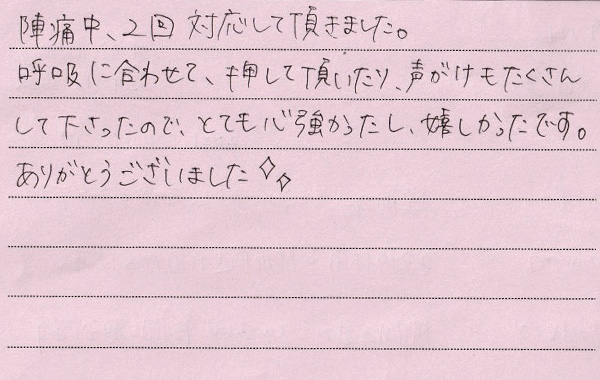 陣痛中、2回 対応して頂きました。
呼吸に合わせて、押して頂いたり、声がけもたくさん
して下さったので、とても心強かったし、嬉しかったです。
ありがとうございました✧✧